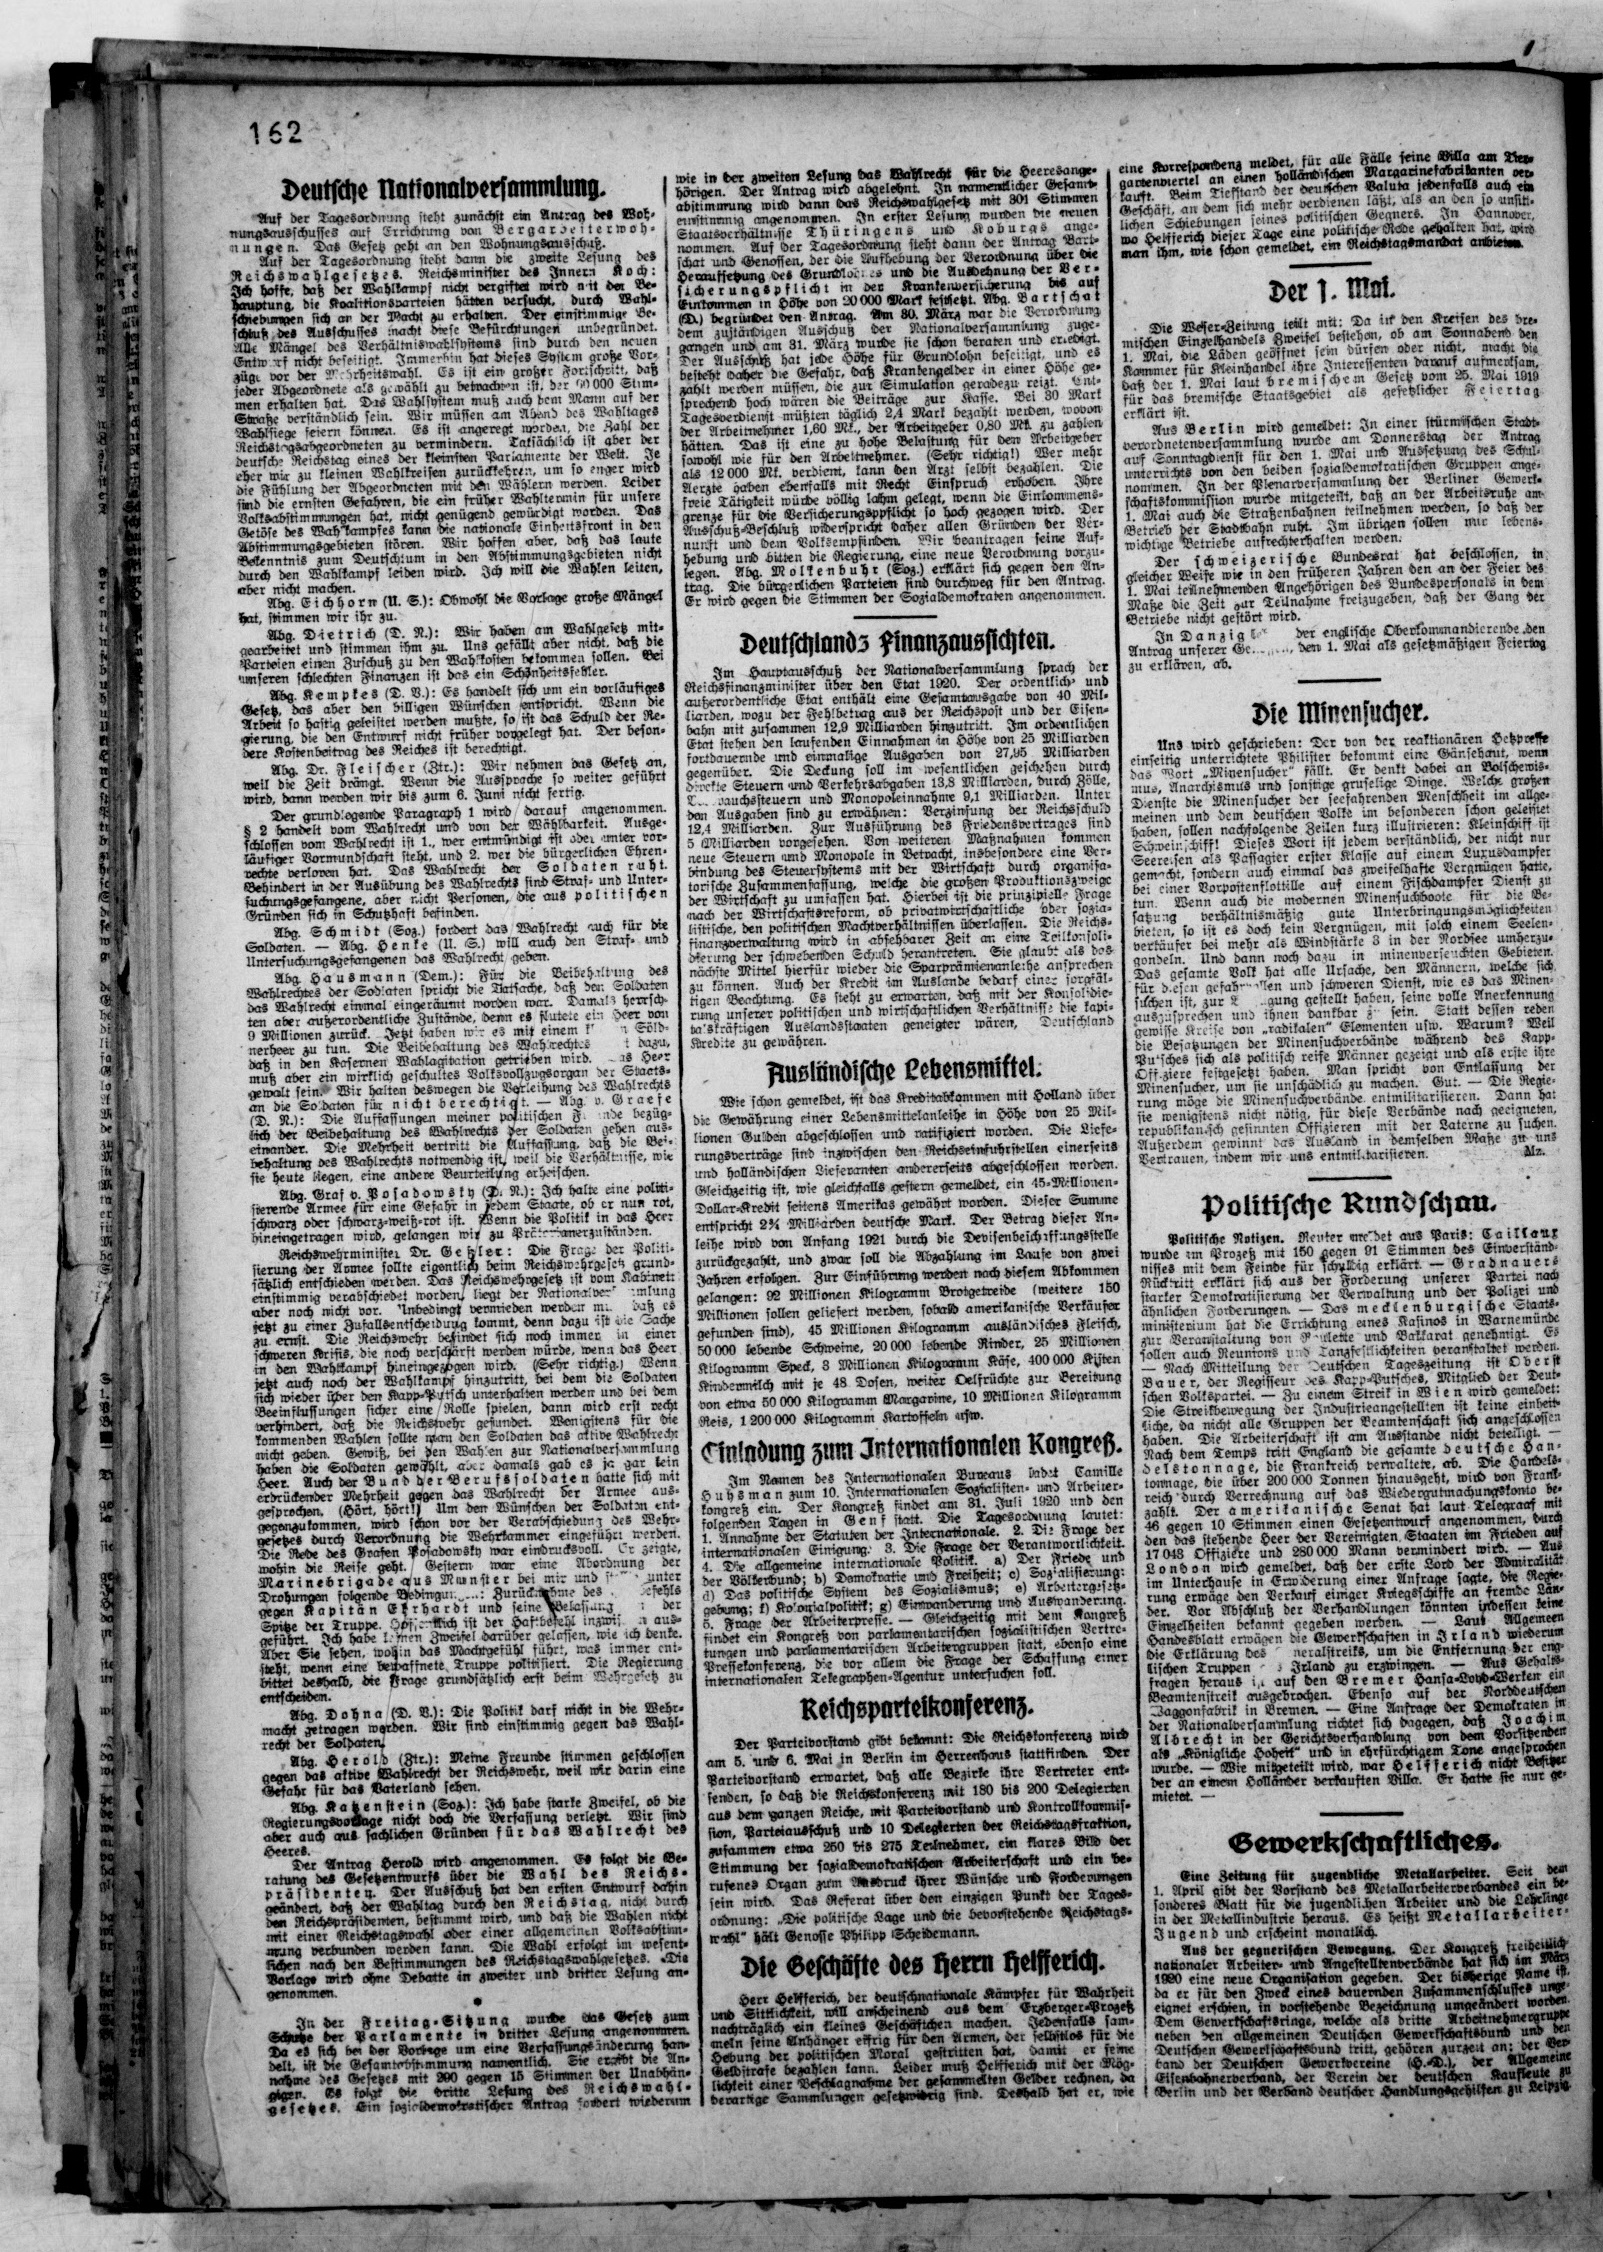 162
Deutsche Nationalversammlung.
Auf der Tagesordnung steht zunächst ein Antrag des Woh-
nungsausschusses auf Errichtung von Bergarbeiterwoh-
nungen. Das Gesetz geht an den Wohnungsausschuß.
Auf der Tagesordnung steht dann die zweite Lesung des
Reichswahlgesetzes. Reichsminister des Innern Koch:
Ich hoffe, daß der Wahlkampf nicht vergiftet wird mit der Be-
hauptung, die Koalitionsparteien hätten versucht, durch Wahl-
schiebungen sich an der Macht zu erhalten. Der einstimmige Be-
schluß des Ausschusses macht diese Befürchtungen unbegründet.
Alle Mängel des Verhältniswahlsystems sind durch den neuen
Entwurf nicht beseitigt. Immerhin hat dieses System große Vor-
züge vor der Mehrheitswahl. Es ist ein großer Fortschritt, daß
jeder Abgeordnete als gewählt zu betrachten ist, der 60 000 Stim-
men erhalten hat. Das Wahlsystem muß auch dem Mann auf der
Straße verständlich sein. Wir müssen am Abend des Wahltages
Wahlsiege feiern können. Es ist angeregt worden, die Zahl der
Reichstagsabgeordneten zu vermindern. Tatsächlich ist aber der
deutsche Reichstag eines der kleinsten Parlamente der Welt. Je
eher wir zu kleinen Wahlkreisen zurückkehren, um so enger wird
die Fühlung der Abgeordneten mit den Wählern werden. Leider
sind die ernsten Gefahren, die ein früher Wahltermin für unsere
Volksabstimmungen hat, nicht genügend gewürdigt worden. Das
Getöse des Wahlkampfes kann die nationale Einheitsfront in den
Abstimmungsgebieten stören. Wir hoffen aber, daß das laute
Bekenntnis zum Deutschtum in den Abstimmungsgebieten nicht
durch den Wahlkampf leiden wird. Ich will die Wahlen leiten,
aber nicht machen.
Abg. Eichhorn (U. S.): Obwohl die Vorlage große Mängel
hat, stimmen wir ihr zu.
Abg. Dietrich (D. N.): Wir haben am Wahlgesetz mit-
gearbeitet und stimmen ihm zu. Uns gefällt aber nicht, daß die
Parteien einen Zuschuß zu den Wahlkosten bekommen sollen. Bei
unseren schlechten Finanzen ist das ein Schönheitsfehler.
Abg. Kempkes (D. V.): Es handelt sich um ein vorläufiges
Gesetz, das aber den billigen Wünschen entspricht. Wenn die
Arbeit so hastig geleistet werden mußte, so ist das Schuld der Re-
gierung, die den Entwurf nicht früher vorgelegt hat. Der beson-
dere Kostenbeitrag des Reiches ist berechtigt.
Abg. Dr. Fleischer (Ztr.): Wir nehmen das Gesetz an,
weil die Zeit drängt. Wenn die Aussprache so weiter geführt
wird, dann werden wir bis zum 6. Juni nicht fertig.
Der grundlegende Paragraph 1 wird darauf angenommen.
§ 2 handelt vom Wahlrecht und von der Wählbarkeit. Ausge-
schlossen vom Wahlrecht ist 1., wer entmündigt ist oder unter vor-
läufiger Vormundschaft steht, und 2. wer die bürgerlichen Ehren-
rechte verloren hat. Das Wahlrecht der Soldaten ruht.
Behindert in der Ausübung des Wahlrechts sind Straf- und Unter-
suchungsgefangene, aber nicht Personen, die aus politischen
Gründen sich in Schutzhaft befinden.
Abg. Schmidt (Soz.) fordert das Wahlrecht auch für die
Soldaten. — Abg. Henke (U. S.) will auch den Straf- und
Untersuchungsgefangenen das Wahlrecht geben.
Abg. Hausmann (Dem.): Für die Beibehaltung des
Wahlrechtes der Soldaten spricht die Tatsache, daß den Soldaten
das Wahlrecht einmal eingeräumt worden war. Damals herrsch-
ten aber außerordentliche Zustände, denn es flutete ein Heer von
9 Millionen zurück. Jetzt haben wir es mit einem Söld-
nerheer zu tun. Die Beibehaltung des Wahlrechtes dazu,
daß in den Kasernen Wahlagitation getrieben wird. Heer
muß aber ein wirklich geschultes Volksvollzugsorgan der Staats-
gewalt sein. Wir halten deswegen die Verleihung des Wahlrechts
an die Soldaten für nicht berechtigt. — Abg. v. Graefe
(D. N.): Die Auffassungen meiner politischen bezüg-
lich der Beibehaltung des Wahlrechts der Soldaten gehen aus-
einander. Die Mehrheit vertritt die Auffassung, daß die Bei-
behaltung des Wahlrechts notwendig ist, weil die Verhältnisse, wie
sie heute liegen, eine andere Beurteilung erheischen.
Abg. Graf v. Posadowsky (D. N.): Ich halte eine politi-
sierende Armee für eine Gefahr in jedem Staate, ob er nun rot,
schwarz oder schwarz-weiß-rot ist. Wenn die Politik in das Heer
hineingetragen wird, gelangen wir zu Prätorianerzuständen.
Reichswehrminister Dr. Geßler: Die Frage der Politi-
sierung der Armee sollte eigentlich beim Reichswehrgesetz grund-
sätzlich entschieden werden. Das Reichswehrgesetz ist vom Kabinett
einstimmig verabschiedet worden, liegt der
aber noch nicht vor. Unbedingt vermieden werden daß es
jetzt zu einer Zufallsentscheidung kommt, denn dazu ist die Sache
zu ernst. Die Reichswehr befindet sich noch immer in einer
schweren Krisis, die noch verschärft werden würde, wenn das Heer
in den Wahlkampf hineingezogen wird. (Sehr richtig.) Wenn
jetzt auch noch der Wahlkampf hinzutritt, bei dem die Soldaten
sich wieder über den Kapp-Putsch unterhalten werden und bei dem
Beeinflussungen sicher eine Rolle spielen, dann wird erst recht
verhindert, daß die Reichswehr gesundet. Wenigstens für die
kommenden Wahlen sollte man den Soldaten das aktive Wahlrecht
nicht geben. Gewiß, bei den Wahlen zur Nationalversammlung
haben die Soldaten gewählt, aber damals gab es ja gar kein
Heer. Auch der Bund der Berufssoldaten hatte sich mit
erdrückender Mehrheit gegen das Wahlrecht der Armee aus-
gesprochen. (Hört, hört!) Um den Wünschen der Soldaten ent-
gegenzukommen, wird schon vor der Verabschiedung des Wehr-
gesetzes durch Verordnung die Wehrkammer eingeführt werden.
Die Rede des Grafen Posadowsky war eindrucksvoll. Er zeigte,
wohin die Reise geht. Gestern war eine Abordnung der
Marinebrigade aus Munster bei mir und unter
Drohungen folgende Zurücknahme des
gegen Kapitän Ehrhardt und seine Belassung der
Spitze der Truppe. Hoffentlich ist der Haftbefehl aus-
geführt. Ich habe keinen Zweifel darüber gelassen, wie ich denke.
Aber Sie sehen, wohin das Machtgefühl führt, was immer ent-
steht, wenn eine bewaffnete Truppe politisiert. Die Regierung
bittet deshalb, die Frage grundsätzlich erst beim Wehrgesetz zu
entscheiden.
Abg. Dohna (D. V.): Die Politik darf nicht in die Wehr-
macht getragen werden. Wir sind einstimmig gegen das Wahl-
recht der Soldaten.
Abg. Herold (Ztr.): Meine Freunde stimmen geschlossen
gegen das aktive Wahlrecht der Reichswehr, weil wir darin eine
Gefahr für das Vaterland sehen.
Abg. Katzenstein (Soz.): Ich habe starke Zweifel, ob die
Regierungsvorlage nicht doch die Verfassung verletzt. Wir sind
aber auch aus sachlichen Gründen für das Wahlrecht des
Heeres.
Der Antrag Herold wird angenommen. Es folgt die Be-
ratung des Gesetzentwurfs über die Wahl des Reichs-
präsidenten. Der Ausschuß hat den ersten Entwurf dahin
geändert, daß der Wahltag durch den Reichstag, nicht durch
den Reichspräsidenten, bestimmt wird, und daß die Wahlen nicht
mit einer Reichstagswahl oder einer allgemeinen Volksabstim-
mung verbunden werden kann. Die Wahl erfolgt im wesent-
lichen nach den Bestimmungen des Reichstagswahlgesetzes. Die
Vorlage wird ohne Debatte in zweiter und dritter Lesung an-
genommen.
In der Freitag-Sitzung wurde das Gesetz zum
Schutze der Parlamente in dritter Lesung angenommen.
Da es sich bei der Vorlage um eine Verfassungsänderung han-
delt, ist die Gesamtabstimmung namentlich. Sie ergibt die An-
nahme des Gesetzes mit 290 gegen 15 Stimmen der Unabhän-
gigen. Es folgt die dritte Lesung des Reichswahl-
gesetzes. Ein sozialdemokratischer Antrag fordert wiederum
wie in der zweiten Lesung das Wahlrecht für die Heeresange-
hörigen. Der Antrag wird abgelehnt. In namentlicher Gesamt-
abstimmung wird dann das Reichswahlgesetz mit 301 Stimmen
einstimmig angenommen. In erster Lesung wurden die neuen
Staatsverhältnisse Thüringens und Koburgs ange-
nommen. Auf der Tagesordnung steht dann der Antrag Bart-
schat und Genossen, der die Aufhebung der Verordnung über die
Heraufsetzung des Grundlohnes und die Ausdehnung der Ver-
sicherungspflicht in der Krankenversicherung bis auf
Einkommen in Höhe von 20 000 Mark festsetzt. Abg. Bartschat
(D.) begründet den Antrag. Am 30. März war die Verordnung
dem zuständigen Ausschuß der Nationalversammlung zuge-
gangen und am 31. März wurde sie schon beraten und erledigt.
Der Ausschuß hat jede Höhe für Grundlohn beseitigt, und es
besteht daher die Gefahr, daß Krankengelder in einer Höhe ge-
zahlt werden müssen, die zur Simulation geradezu reizt. Ent-
sprechend hoch wären die Beiträge zur Kasse. Bei 30 Mark
Tagesverdienst müßten täglich 2,4 Mark bezahlt werden, wovon
der Arbeitnehmer 1,60 Mk., der Arbeitgeber 0,80 Mk. zu zahlen
hätten. Das ist eine zu hohe Belastung für den Arbeitgeber
sowohl wie für den Arbeitnehmer. (Sehr richtig!) Wer mehr
als 12 000 Mk. verdient, kann den Arzt selbst bezahlen. Die
Aerzte haben ebenfalls mit Recht Einspruch erhoben. Ihre
freie Tätigkeit würde völlig lahm gelegt, wenn die Einkommens-
grenze für die Versicherungspflicht so hoch gezogen wird. Der
Ausschuß-Beschluß widerspricht daher allen Gründen der Ver-
nunft und dem Volksempfinden. Wir beantragen seine Auf-
hebung und bitten die Regierung, eine neue Verordnung vorzu-
legen. Abg. Molkenbuhr (Soz.) erklärt sich gegen den An-
trag. Die bürgerlichen Parteien sind durchweg für den Antrag.
Er wird gegen die Stimmen der Sozialdemokraten angenommen.
Deutschlands Finanzaussichten.
Im Hauptausschuß der Nationalversammlung sprach der
Reichsfinanzminister über den Etat 1920. Der ordentliche und
außerordentliche Etat enthält eine Gesamtausgabe von 40 Mil-
liarden, wozu der Fehlbetrag aus der Reichspost und der Eisen-
bahn mit zusammen 12,9 Milliarden hinzutritt. Im ordentlichen
Etat stehen den laufenden Einnahmen in Höhe von 25 Milliarden
fortdauernde und einmalige Ausgaben von 27,95 Milliarden
gegenüber. Die Deckung soll im wesentlichen geschehen durch
direkte Steuern und Verkehrsabgaben 13,8 Milliarden, durch Zölle,
und Monopoleinnahme 9,1 Milliarden. Unter
den Ausgaben sind zu erwähnen: Verzinsung der Reichsschuld
12,4 Milliarden. Zur Ausführung des Friedensvertrages sind
5 Milliarden vorgesehen. Von weiteren Maßnahmen kommen
neue Steuern und Monopole in Betracht, insbesondere eine Ver-
bindung des Steuersystems mit der Wirtschaft durch organisa-
torische Zusammenfassung, welche die großen Produktionszweige
der Wirtschaft zu umfassen hat. Hierbei ist die prinzipielle Frage
nach der Wirtschaftsreform, ob privatwirtschaftliche oder sozia-
listische, den politischen Machtverhältnissen überlassen. Die Reichs-
finanzverwaltung wird in absehbarer Zeit an eine Teilkonsoli-
dierung der schwebenden Schuld herantreten. Sie glaubt als das
nächste Mittel hierfür wieder die Sparprämienanleihe ansprechen
zu können. Auch der Kredit im Auslande bedarf einer sorgfäl-
tigen Beachtung. Es steht zu erwarten, daß mit der Konsolidie-
rung unserer politischen und wirtschaftlichen Verhältnisse die kapi-
talskräftigen Auslandsstaaten geneigter wären, Deutschland
Kredite zu gewähren.
Ausländische Lebensmittel.
Wie schon gemeldet, ist das Kreditabkommen mit Holland über
die Gewährung einer Lebensmittelanleihe in Höhe von 25 Mil-
lionen Gulden abgeschlossen und ratifiziert worden. Die Liefe-
rungsverträge sind inzwischen den Reichseinfuhrstellen einerseits
und holländischen Lieferanten andererseits abgeschlossen worden.
Gleichzeitig ist, wie gleichfalls gestern gemeldet, ein 45-Millionen-
Dollar-Kredit seitens Amerikas gewährt worden. Dieser Summe
entspricht 2¾ Milliarden deutsche Mark. Der Betrag dieser An-
leihe wird von Anfang 1921 durch die Devisenbeschaffungsstelle
zurückgezahlt, und zwar soll die Abzahlung im Laufe von zwei
Jahren erfolgen. Zur Einführung werden nach diesem Abkommen
gelangen: 92 Millionen Kilogramm Brotgetreide (weitere 150
Millionen sollen geliefert werden, sobald amerikanische Verkäufer
gefunden sind), 45 Millionen Kilogramm ausländisches Fleisch,
50 000 lebende Schweine, 20 000 lebende Rinder, 25 Millionen
Kilogramm Speck, 3 Millionen Kilogramm Käse, 400 000 Kisten
Kindermilch mit je 48 Dosen, weiter Oelfrüchte zur Bereitung
von etwa 50 000 Kilogramm Margarine, 10 Millionen Kilogramm
Reis, 1 200 000 Kilogramm Kartoffeln usw.
Einladung zum Internationalen Kongreß.
Im Namen des Internationalen Bureaus ladet Camille
Huysman zum 10. Internationalen Sozialisten- und Arbeiter-
kongreß ein. Der Kongreß findet am 31. Juli 1920 und den
folgenden Tagen in Genf statt. Die Tagesordnung lautet:
1. Annahme der Statuten der Internationale. 2. Die Frage der
internationalen Einigung. 3. Die Frage der Verantwortlichkeit.
4. Die allgemeine internationale Politik. a) Der Friede und
der Völkerbund; b) Demokratie und Freiheit; c) Sozialisierung;
d) Das politische System des Sozialismus; e) Arbeitergesetz-
gebung; f) Kolonialpolitik; g) Einwanderung und Auswanderung.
5. Frage der Arbeiterpresse. — Gleichzeitig mit dem Kongreß
findet ein Kongreß von parlamentarischen sozialistischen Vertre-
tungen und parlamentarischen Arbeitergruppen statt, ebenso eine
Pressekonferenz, die vor allem die Frage der Schaffung einer
internationalen Telegraphen-Agentur untersuchen soll.
Reichsparteikonferenz.
Der Parteivorstand gibt bekannt: Die Reichskonferenz wird
am 5. und 6. Mai in Berlin im Herrenhaus stattfinden. Der
Parteivorstand erwartet, daß alle Bezirke ihre Vertreter ent-
senden, so daß die Reichskonferenz mit 180 bis 200 Delegierten
aus dem ganzen Reiche, mit Parteivorstand und Kontrollkommis-
sion, Parteiausschuß und 10 Delegierten der Reichstagsfraktion,
zusammen etwa 250 bis 275 Teilnehmer, ein klares Bild der
Stimmung der sozialdemokratischen Arbeiterschaft und ein be-
rufenes Organ zum Ausdruck ihrer Wünsche und Forderungen
sein wird. Das Referat über den einzigen Punkt der Tages-
ordnung: „Die politische Lage und die bevorstehende Reichstags-
wahl“ hält Genosse Philipp Scheidemann.
Die Geschäfte des Herrn Helfferich.
Herr Helfferich, der deutschnationale Kämpfer für Wahrheit
und Sittlichkeit, will anscheinend aus dem Erzberger-Prozeß
nachträglich ein kleines Geschäftchen machen. Jedenfalls sam-
meln seine Anhänger eifrig für den Armen, der selbstlos für die
Hebung der politischen Moral gestritten hat, damit er seine
Geldstrafe bezahlen kann. Leider muß Helfferich mit der Mög-
lichkeit einer Beschlagnahme der gesammelten Gelder rechnen, da
derartige Sammlungen gesetzwidrig sind. Deshalb hat er, wie
eine Korrespondenz meldet, für alle Fälle seine Villa am Tier-
gartenviertel an einen holländischen Margarinefabrikanten ver-
kauft. Beim Tiefstand der deutschen Valuta jedenfalls auch ein
Geschäft, an dem sich mehr verdienen läßt, als an den so unsitt-
lichen Schiebungen seines politischen Gegners. In Hannover,
wo Helfferich dieser Tage eine politische Rede gehalten hat, wird
man ihm, wie schon gemeldet, ein Reichstagsmandat anbieten.
Der 1. Mai.
Die Weser-Zeitung teilt mit: Da in den Kreisen des bre-
mischen Einzelhandels Zweifel bestehen, ob am Sonnabend den
1. Mai, die Läden geöffnet sein dürfen oder nicht, macht die
Kammer für Kleinhandel ihre Interessenten darauf aufmerksam,
daß der 1. Mai laut bremischem Gesetz vom 25. Mai 1919
für das bremische Staatsgebiet als gesetzlicher Feiertag
erklärt ist.
Aus Berlin wird gemeldet: In einer stürmischen Stadt-
verordnetenversammlung wurde am Donnerstag der Antrag
auf Sonntagdienst für den 1. Mai und Aussetzung des Schul-
unterrichts von den beiden sozialdemokratischen Gruppen ange-
nommen. In der Plenarversammlung der Berliner Gewerk-
schaftskommission wurde mitgeteilt, daß an der Arbeitsruhe am
1. Mai auch die Straßenbahnen teilnehmen werden, so daß der
Betrieb der Stadtbahn ruht. Im übrigen sollen nur lebens-
wichtige Betriebe aufrechterhalten werden.
Der schweizerische Bundesrat hat beschlossen, in
gleicher Weise wie in den früheren Jahren den an der Feier des
1. Mai teilnehmenden Angehörigen des Bundespersonals in dem
Maße die Zeit zur Teilnahme freizugeben, daß der Gang der
Betriebe nicht gestört wird.
In Danzig der englische Oberkommandierende den
Antrag unserer den 1. Mai als gesetzmäßigen Feiertag
zu erklären, ab.
Die Minensucher.
Uns wird geschrieben: Der von der reaktionären Hetzpresse
einseitig unterrichtete Philister bekommt eine Gänsehaut, wenn
das Wort „Minensucher“ fällt. Er denkt dabei an Bolschewis-
mus, Anarchismus und sonstige gruselige Dinge. Welch großen
Dienste die Minensucher der seefahrenden Menschheit im allge-
meinen und dem deutschen Volke im besonderen schon geleistet
haben, sollen nachfolgende Zeilen kurz illustrieren: Kleinschiff ist
Schweinschiff! Dieses Wort ist jedem verständlich, der nicht nur
Seereisen als Passagier erster Klasse auf einem Luxusdampfer
gemacht, sondern auch einmal das zweifelhafte Vergnügen hatte,
bei einer Vorpostenflottille auf einem Fischdampfer Dienst zu
tun. Wenn auch die modernen Minensuchboote für die Be-
satzung verhältnismäßig gute Unterbringungsmöglichkeiten
bieten, so ist es doch kein Vergnügen, mit solch einem Seelen-
verkäufer bei mehr als Windstärke 3 in der Nordsee umherzu-
gondeln. Und dann noch dazu in minenverseuchten Gebieten.
Das gesamte Volk hat alle Ursache, den Männern, welche sich
für diesen gefahrvollen und schweren Dienst, wie es das Minen-
suchen ist, zur gestellt haben, seine volle Anerkennung
auszusprechen und ihnen dankbar zu sein. Statt dessen reden
gewisse Kreise von „radikalen“ Elementen usw. Warum? Weil
die Besatzungen der Minensuchverbände während des Kapp-
Putsches sich als politisch reife Männer gezeigt und als erste ihre
Offiziere festgesetzt haben. Man spricht von Entlassung der
Minensucher, um sie unschädlich zu machen. Gut. — Die Regie-
rung möge die Minensuchverbände entmilitarisieren. Dann hat
sie wenigstens nicht nötig, für diese Verbände nach geeigneten,
republikanisch gesinnten Offizieren mit der Laterne zu suchen.
Außerdem gewinnt das Ausland in demselben Maße zu uns
Vertrauen, indem wir uns entmilitarisieren. Mz.
Politische Rundschau.
Politische Notizen. Reuter meldet aus Paris: Caillaux
wurde im Prozeß mit 150 gegen 91 Stimmen des Einverständ-
nisses mit dem Feinde für schuldig erklärt. — Gradnauers
Rücktritt erklärt sich aus der Forderung unserer Partei nach
starker Demokratisierung der Verwaltung und der Polizei und
ähnlichen Forderungen. — Das mecklenburgische Staats-
ministerium hat die Errichtung eines Kasinos in Warnemünde
zur Veranstaltung von Roulette und Bakkarat genehmigt. Es
sollen auch Reunions und Tanzfestlichkeiten veranstaltet werden.
— Nach Mitteilung der Deutschen Tageszeitung ist Oberst
Bauer, der Regisseur des Kapp-Putsches, Mitglied der Deut-
schen Volkspartei. — Zu einem Streik in Wien wird gemeldet:
Die Streikbewegung der Industrieangestellten ist keine einheit-
liche, da nicht alle Gruppen der Beamtenschaft sich angeschlossen
haben. Die Arbeiterschaft ist am Ausstande nicht beteiligt. —
Nach dem Temps tritt England die gesamte deutsche Han-
delstonnage, die Frankreich verwaltete, ab. Die Handels-
tonnage, die über 200 000 Tonnen hinausgeht, wird von Frank-
reich durch Verrechnung auf das Wiedergutmachungskonto be-
zahlt. Der amerikanische Senat hat laut Telegraaf mit
46 gegen 10 Stimmen einen Gesetzentwurf angenommen, durch
den das stehende Heer der Vereinigten Staaten im Frieden auf
17 043 Offiziere und 280 000 Mann vermindert wird. — Aus
London wird gemeldet, daß der erste Lord der Admiralität
im Unterhause in Erwiderung einer Anfrage sagte, die Regie-
rung erwäge den Verkauf einiger Kriegsschiffe an fremde Län-
der. Vor Abschluß der Verhandlungen könnten indessen keine
Einzelheiten bekannt gegeben werden. — Laut Allgemeen
Handesblatt erwägen die Gewerkschaften in Irland wiederum
die Erklärung des um die Entfernung der eng-
lischen Truppen Irland zu erzwingen. — Aus Gehalts-
fragen heraus ist auf den Bremer Hansa-Lloyd-Werken ein
Beamtenstreik ausgebrochen. Ebenso auf der Norddeutschen
Waggonfabrik in Bremen. — Eine Anfrage der Demokraten in
der Nationalversammlung richtet sich dagegen, daß Joachim
Albrecht in der Gerichtsverhandlung von dem Vorsitzenden
als „Königliche Hoheit“ und in ehrfürchtigem Tone angesprochen
wurde. — Wie mitgeteilt wird, war Helfferich nicht Besitzer
der an einem Holländer verkauften Villa. Er hatte sie nur ge-
mietet. —
Gewerkschaftliches.
Eine Zeitung für jugendliche Metallarbeiter. Seit dem
1. April gibt der Vorstand des Metallarbeiterverbandes ein be-
sonderes Blatt für die jugendlichen Arbeiter und die Lehrlinge
in der Metallindustrie heraus. Es heißt Metallarbeiter-
Jugend und erscheint monatlich.
Aus der gegnerischen Bewegung. Der Kongreß freiheitlich-
nationaler Arbeiter- und Angestelltenverbände hat sich im März
1920 eine neue Organisation gegeben. Der bisherige Name ist,
da er für den Zweck eines dauernden Zusammenschlusses unge-
eignet erschien, in vorstehende Bezeichnung umgeändert worden.
Dem Gewerkschaftsringe, welche als dritte Arbeitnehmergruppe
neben den allgemeinen Deutschen Gewerkschaftsbund und den
Deutschen Gewerkschaftsbund tritt, gehören zurzeit an: der Ver-
band der Deutschen Gewerkvereine (H.-D.), der Allgemeine
Eisenbahnerverband, der Verein der deutschen Kaufleute zu
Berlin und der Verband deutscher Handlungsgehilfen zu Leipzig